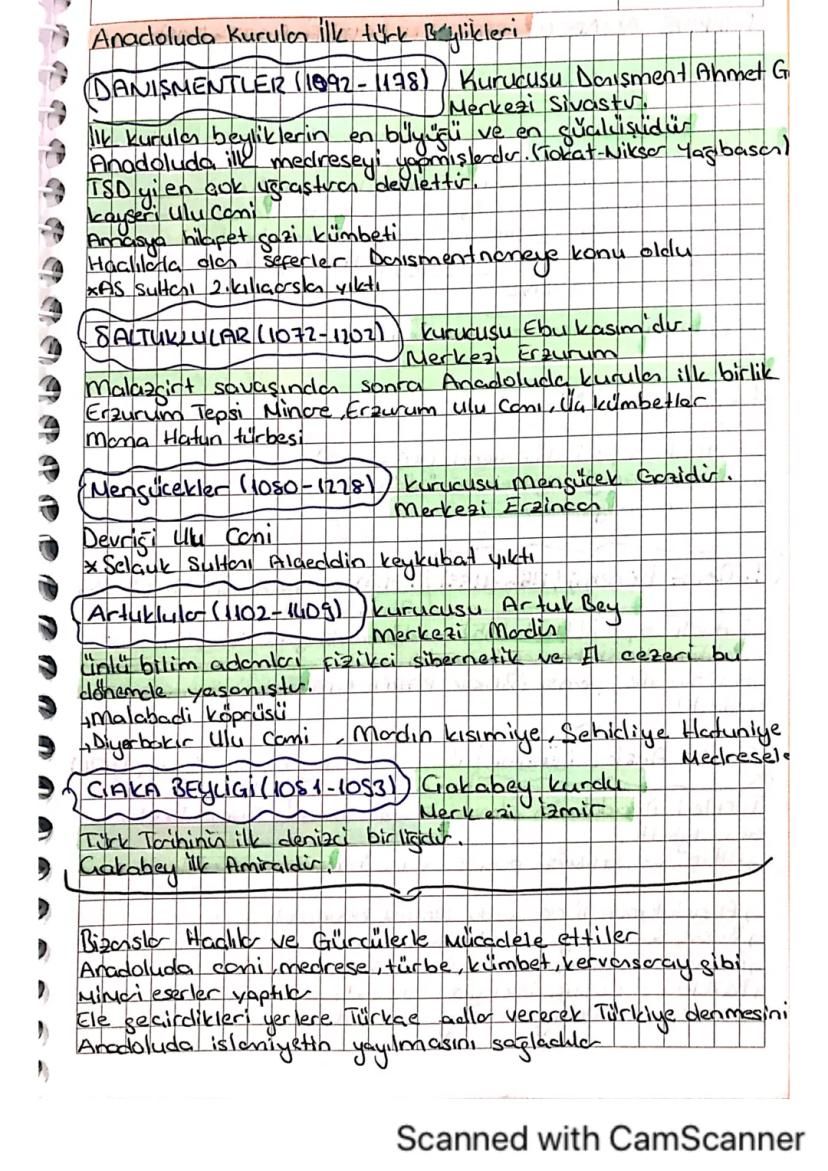 Anadoluda Kurulan İlk türk Beylikleri
DANIŞMENTLER (1092-1178) Kurucusu Danışment Ahmet G
Merkezi Sivastır.
İlk kurulan beyliklerin en büyüğü ve en güçlüsüdür
Anadoluda ilk medreseyi yapmışlardır. (Tokat-Niksar Yağıbasan)
TSD yi en çok uğraştıran devlettir.
Kayseri Ulu Cami
Amasya hilafet gazi kümbeti
Haçlılarla olan seferler Danışmentnameye konu oldu
*AS sultanı 2.kılıçarslan yıktı
SALTUKLULAR (1072-1202) Kurucusu Ebu kasım'dır.
Merkezi Erzurum
Malazgirt savaşından sonra Anadoluda kurulan ilk birlik
Erzurum Tepsi Minare, Erzurum Ulu Cami, Üç kümbetler
mama Hatun türbesi
Mengücekler (1080-1228) kurucusu mengücek Gazidir.
Merkezi Erzincan
Devriği Ulu Cami
* Selçuk Sultanı Alaeddin keykubat yıktı
Artuklular (1102-1409) kurucusu Artuk Bey
Merkezi Mardin
Ünlü bilim adamları fizikci sibernetik ve El cezeri bu
dönemde yaşamıştır.
→Malabadi köprüsü
→Diyarbakır Ulu Cami, Mardin kısımiye, Sehidiye Hatuniye
Medresele
ÇAKA BEYLİGİ (1081-1093) Çakabey kurdu
Merkezi İzmir
Türk Tarihinin ilk denizci birliğidir.
Çakabey ilk Amiraldir.
Bizanslar Haçlılar ve Gürcülerle Mücadele ettiler
Anadoluda cami, medrese, türbe, kümbet, kervansaray gibi
Mimari eserler yaptılar
Ele geçirdikleri yerlere Türkçe adlar vererek Türkiye denmesini
Anadoluda islamiyetin yayılmasını sağladılar
Scanned with CamScanner